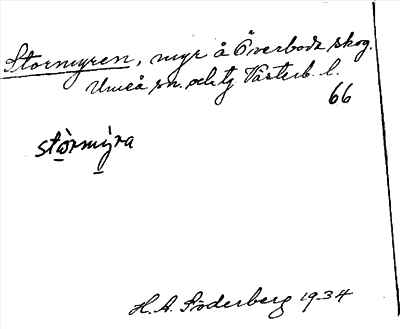 Stormyren, myr å Överboda skog.
Umeå sn. och tg Västerb. l.
66
stòrmýra
H. A. Söderberg 1934